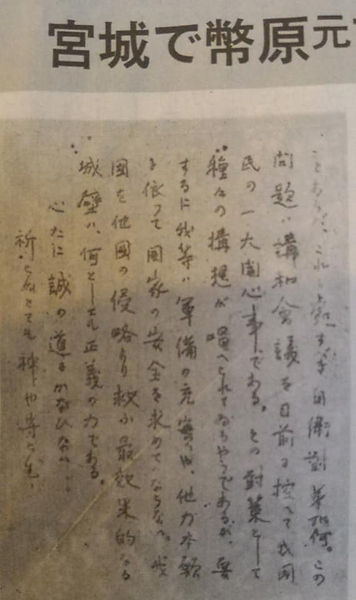 宮城で幣原元
ことあらば、これに処する自衛対策如何。この
問題は講和会議を目前に控へて我国
民の一大関心事である。との対策として
種々の構想が唱へられてゐるやうであるが、要
するに我等は軍備の充実や、他力本願
に依って国家の安全を求めてはならない。我
国を他国の侵略より救ふ最効果的なる
城壁は、何としても正義の力である。
心だに誠の道にかなひなば
祈らずとても神や守らん